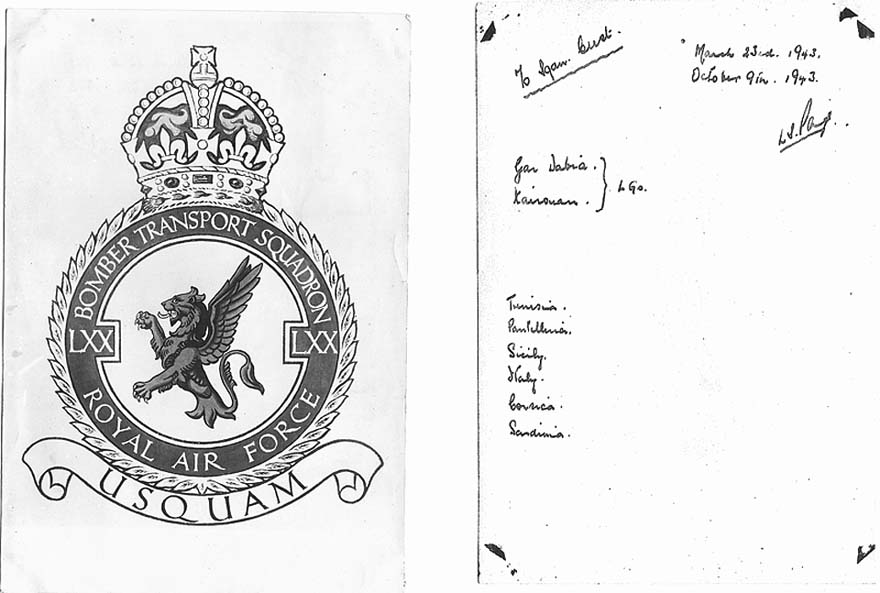 BOMBER TRANSPORT SQUADRON
LXX LXX
ROYAL AIR FORCE
USQUAM
March 23rd. 1943.
October 9th. 1943.
Gar Dabia.
Kairouan.
LGs.
Tunisia.
Pantelleria.
Sicily.
Italy.
Corsica.
Sardinia.